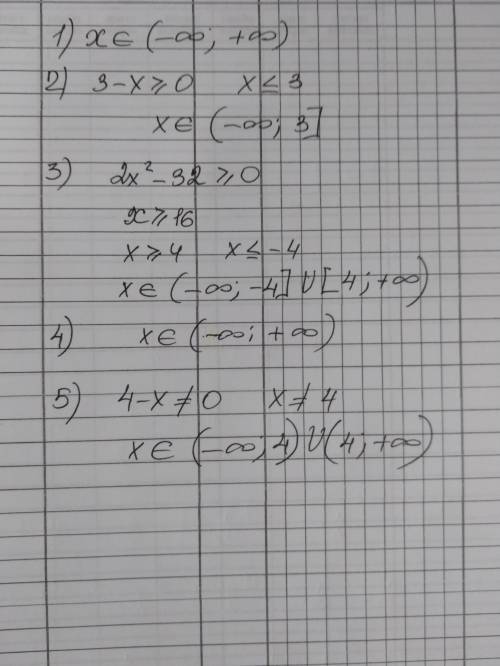 1) x ∈ (-∞; +∞)
2) 3-x ≥ 0 x ≤ 3
x ∈ (-∞; 3]
3) 2x²-32 ≥ 0
x ≥ 16
x ≥ 4 x ≤ -4
x ∈ (-∞; -4] U [4; +∞)
4) x ∈ (-∞; +∞)
5) 4-x ≠ 0 x ≠ 4
x ∈ (-∞; 4) U (4; +∞)